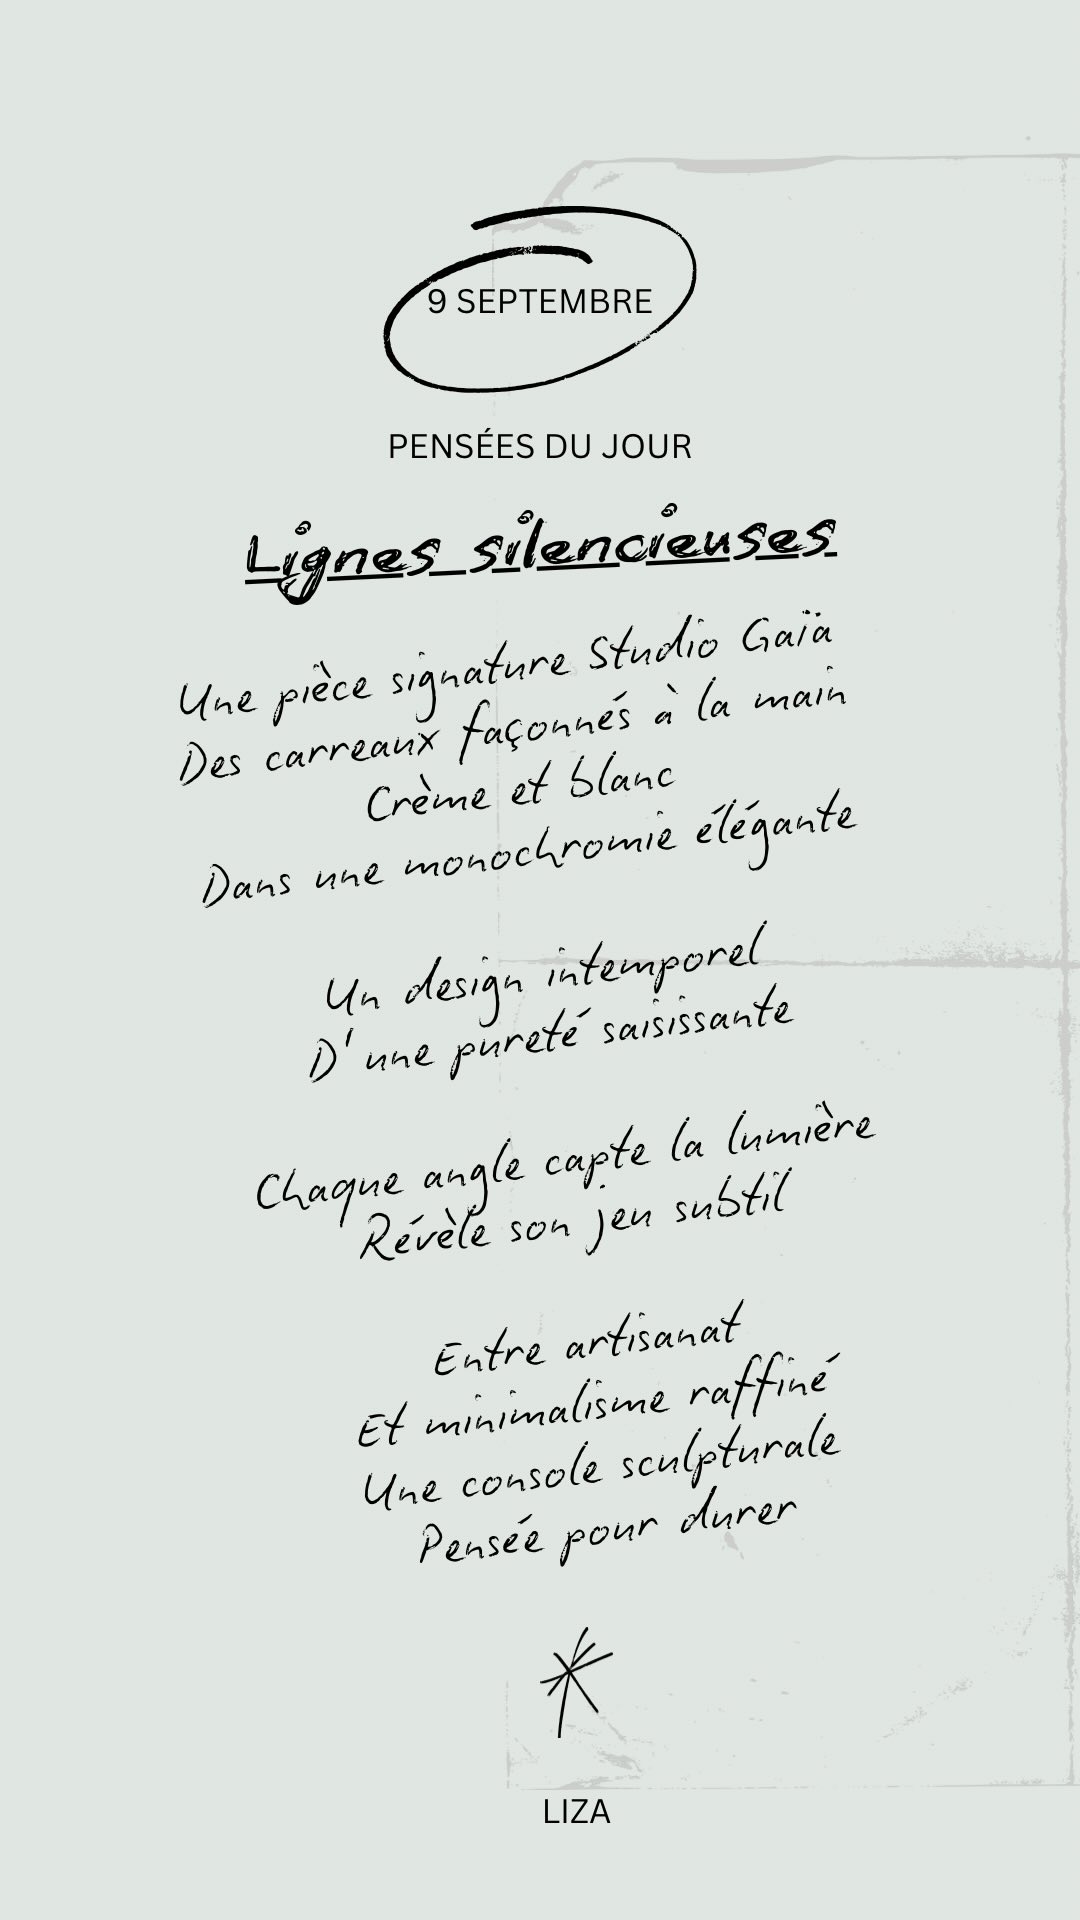 9 SEPTEMBRE
PENSÉES DU JOUR
Lignes silencieuses
Une pièce signature Studio Gaïa
Des carreaux façonnés à la main
Crème et blanc
Dans une monochromie élégante
Un design intemporel
D' une pureté saisissante
Chaque angle capte la lumière
Révèle son jeu subtil
Entre artisanat
Et minimalisme raffiné
Une console sculpturale
Pensée pour durer
LIZA